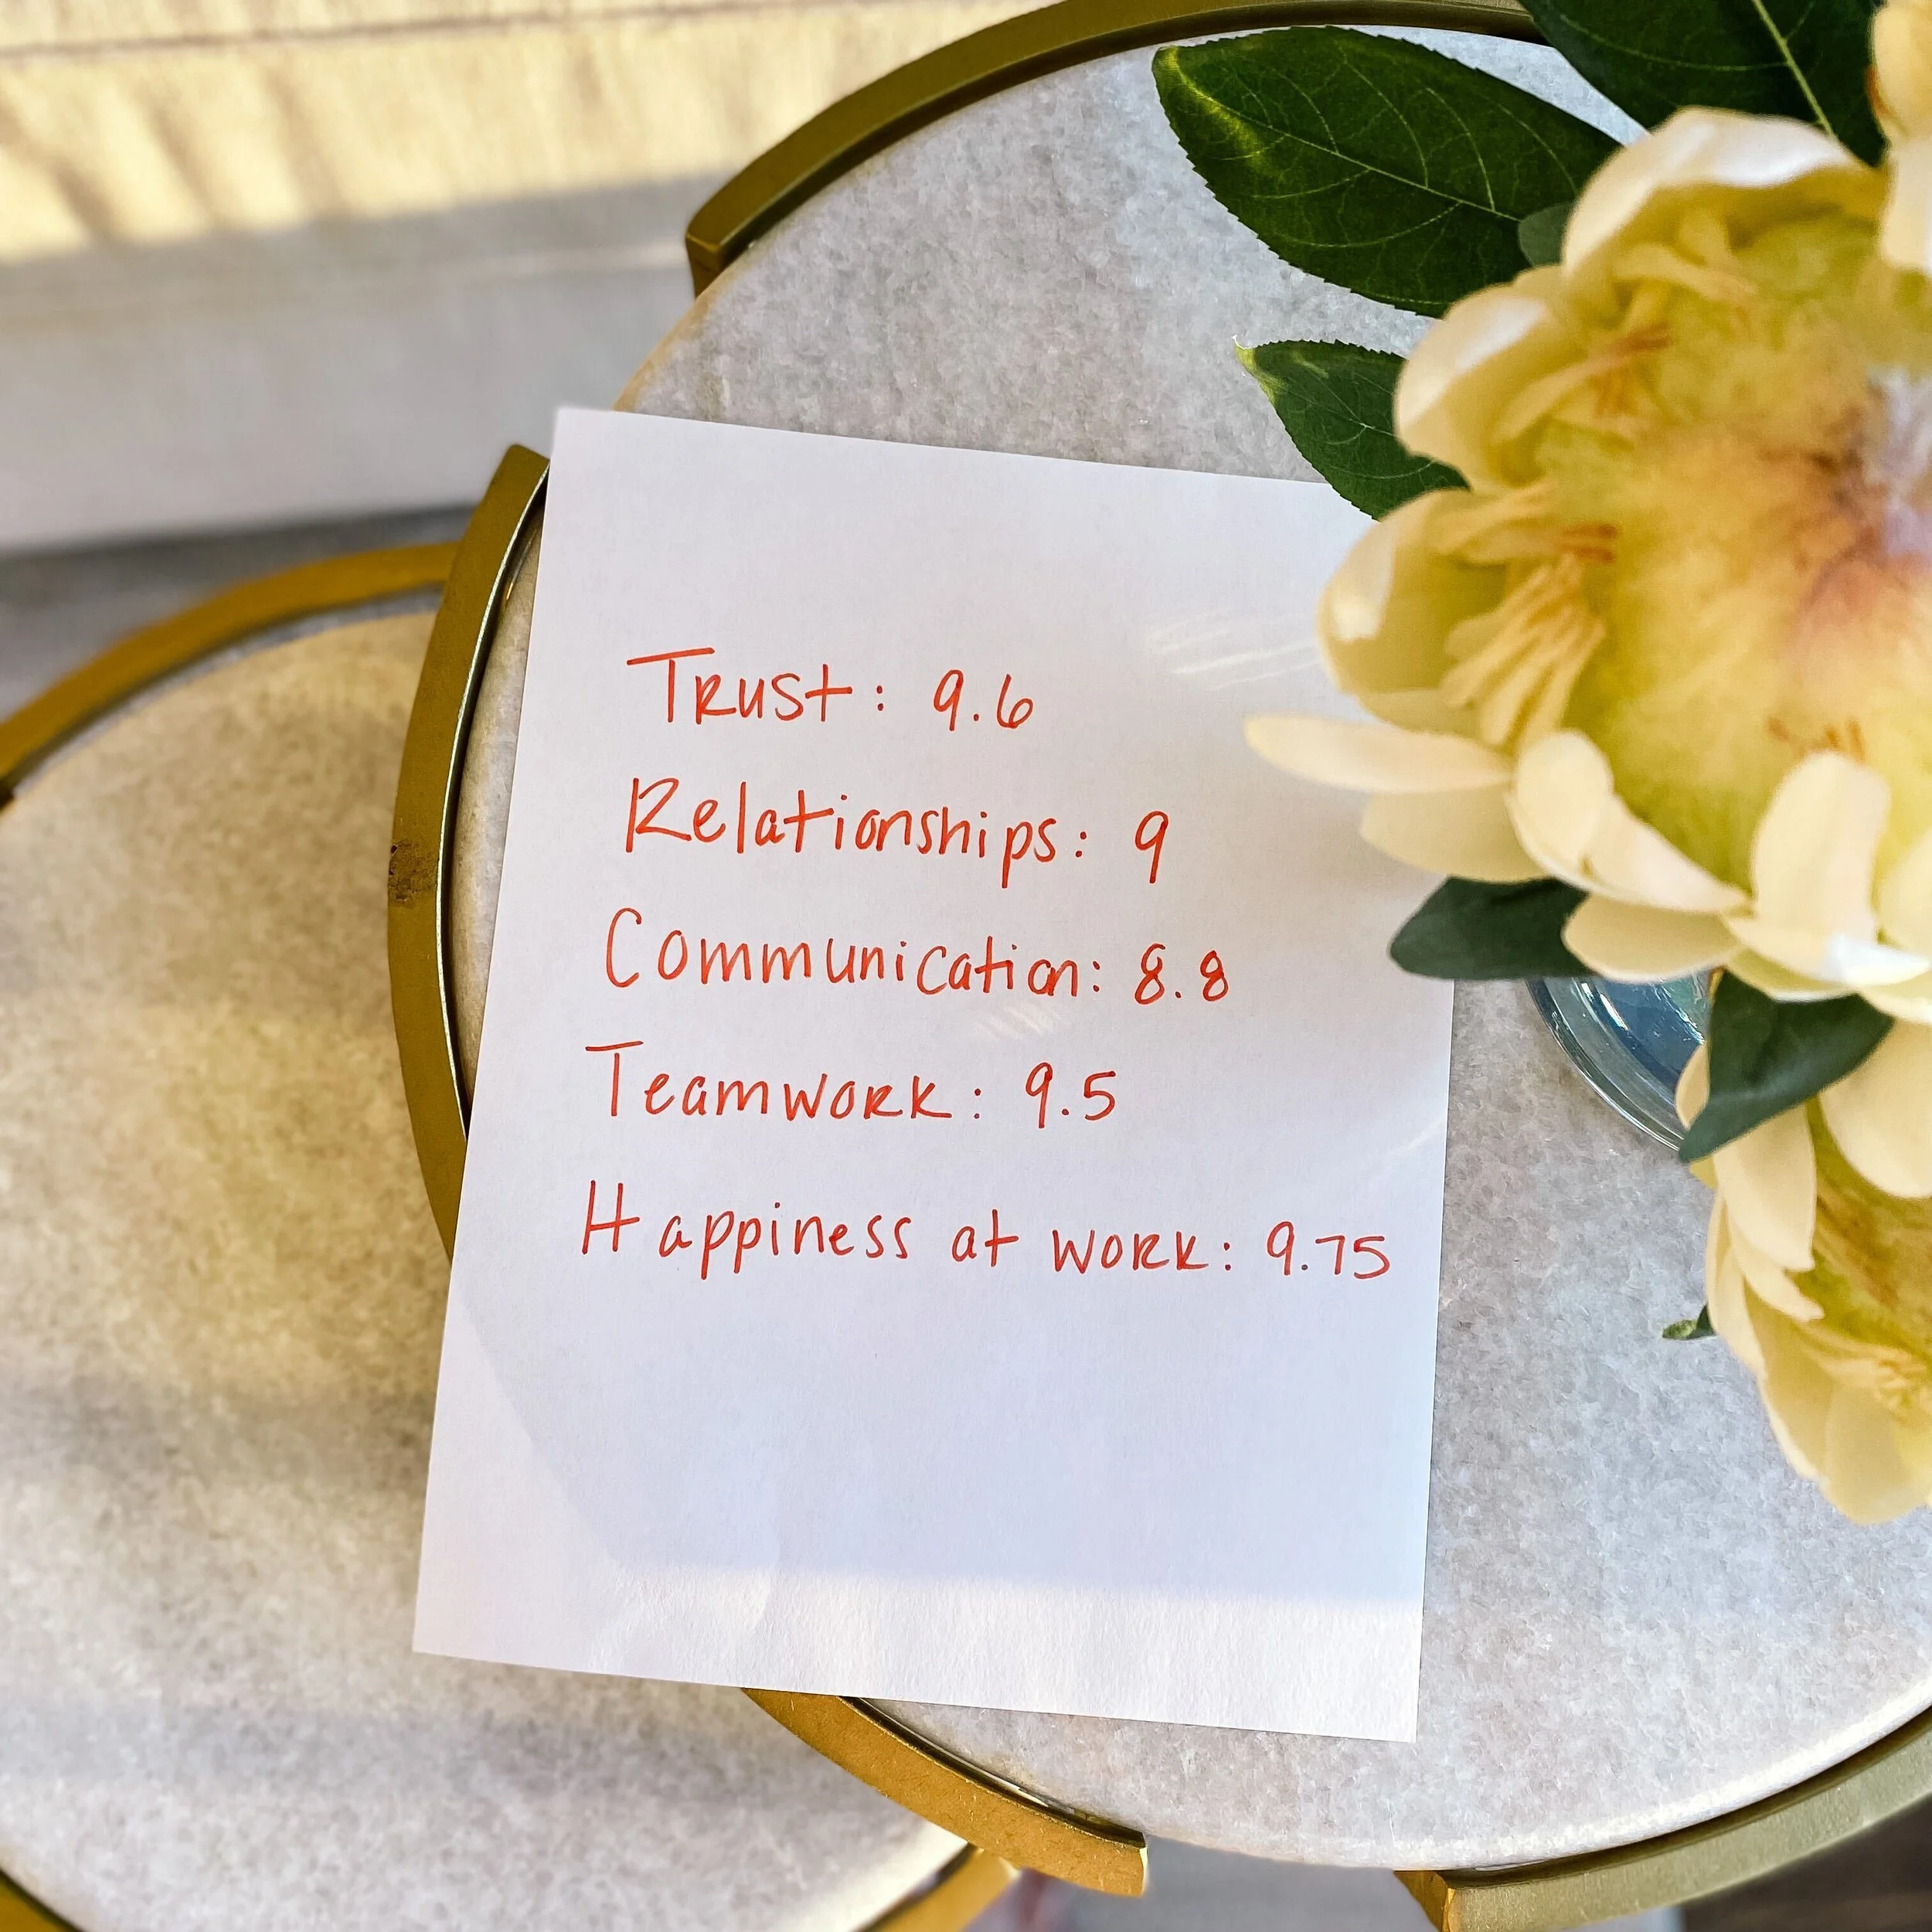 Trust: 9.6
Relationships: 9
Communication: 8.8
Teamwork: 9.5
Happiness at work: 9.75